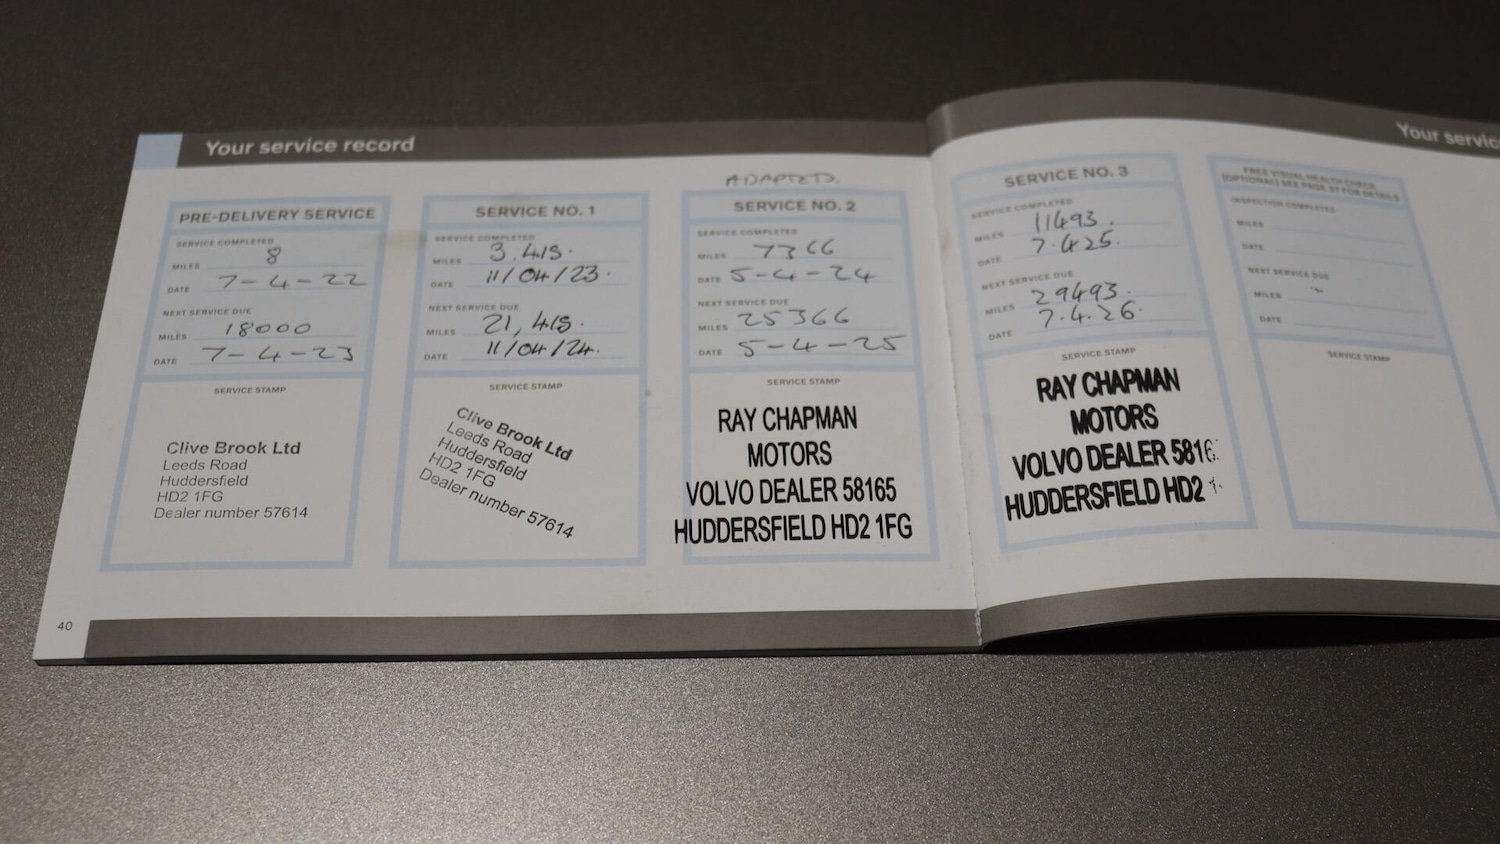 Your service record
PRE-DELIVERY SERVICE
SERVICE COMPLETED
MILES 8
DATE 7-4-22
NEXT SERVICE DUE
MILES 18000
DATE 7-4-23
SERVICE STAMP
Clive Brook Ltd
Leeds Road
Huddersfield
HD2 1FG
Dealer number 57614
40
SERVICE NO. 1
SERVICE COMPLETED
MILES 3,415.
DATE 11/04/23.
NEXT SERVICE DUE
MILES 21,415.
DATE 11/04/24.
SERVICE STAMP
Clive Brook Ltd
Leeds Road
Huddersfield
HD2 1FG
Dealer number 57614
ADAPTED.
SERVICE NO. 2
SERVICE COMPLETED
MILES 7366
DATE 5-4-24
NEXT SERVICE DUE
MILES 25366
DATE 5-4-25
SERVICE STAMP
RAY CHAPMAN
MOTORS
VOLVO DEALER 58165
HUDDERSFIELD HD2 1FG
Your servic
SERVICE NO. 3
SERVICE COMPLETED
MILES 11493.
DATE 7.4.25.
NEXT SERVICE DUE
MILES 29493.
DATE 7.4.26.
SERVICE STAMP
RAY CHAPMAN
MOTORS
VOLVO DEALER 5816
HUDDERSFIELD HD2
FREE VISUAL HEALTH CHECK
(OPTIONAL) SEE PAGE 37 FOR DETAILS
INSPECTION COMPLETED
MILES
DATE
NEXT SERVICE DUE
MILES
DATE
SERVICE STAMP